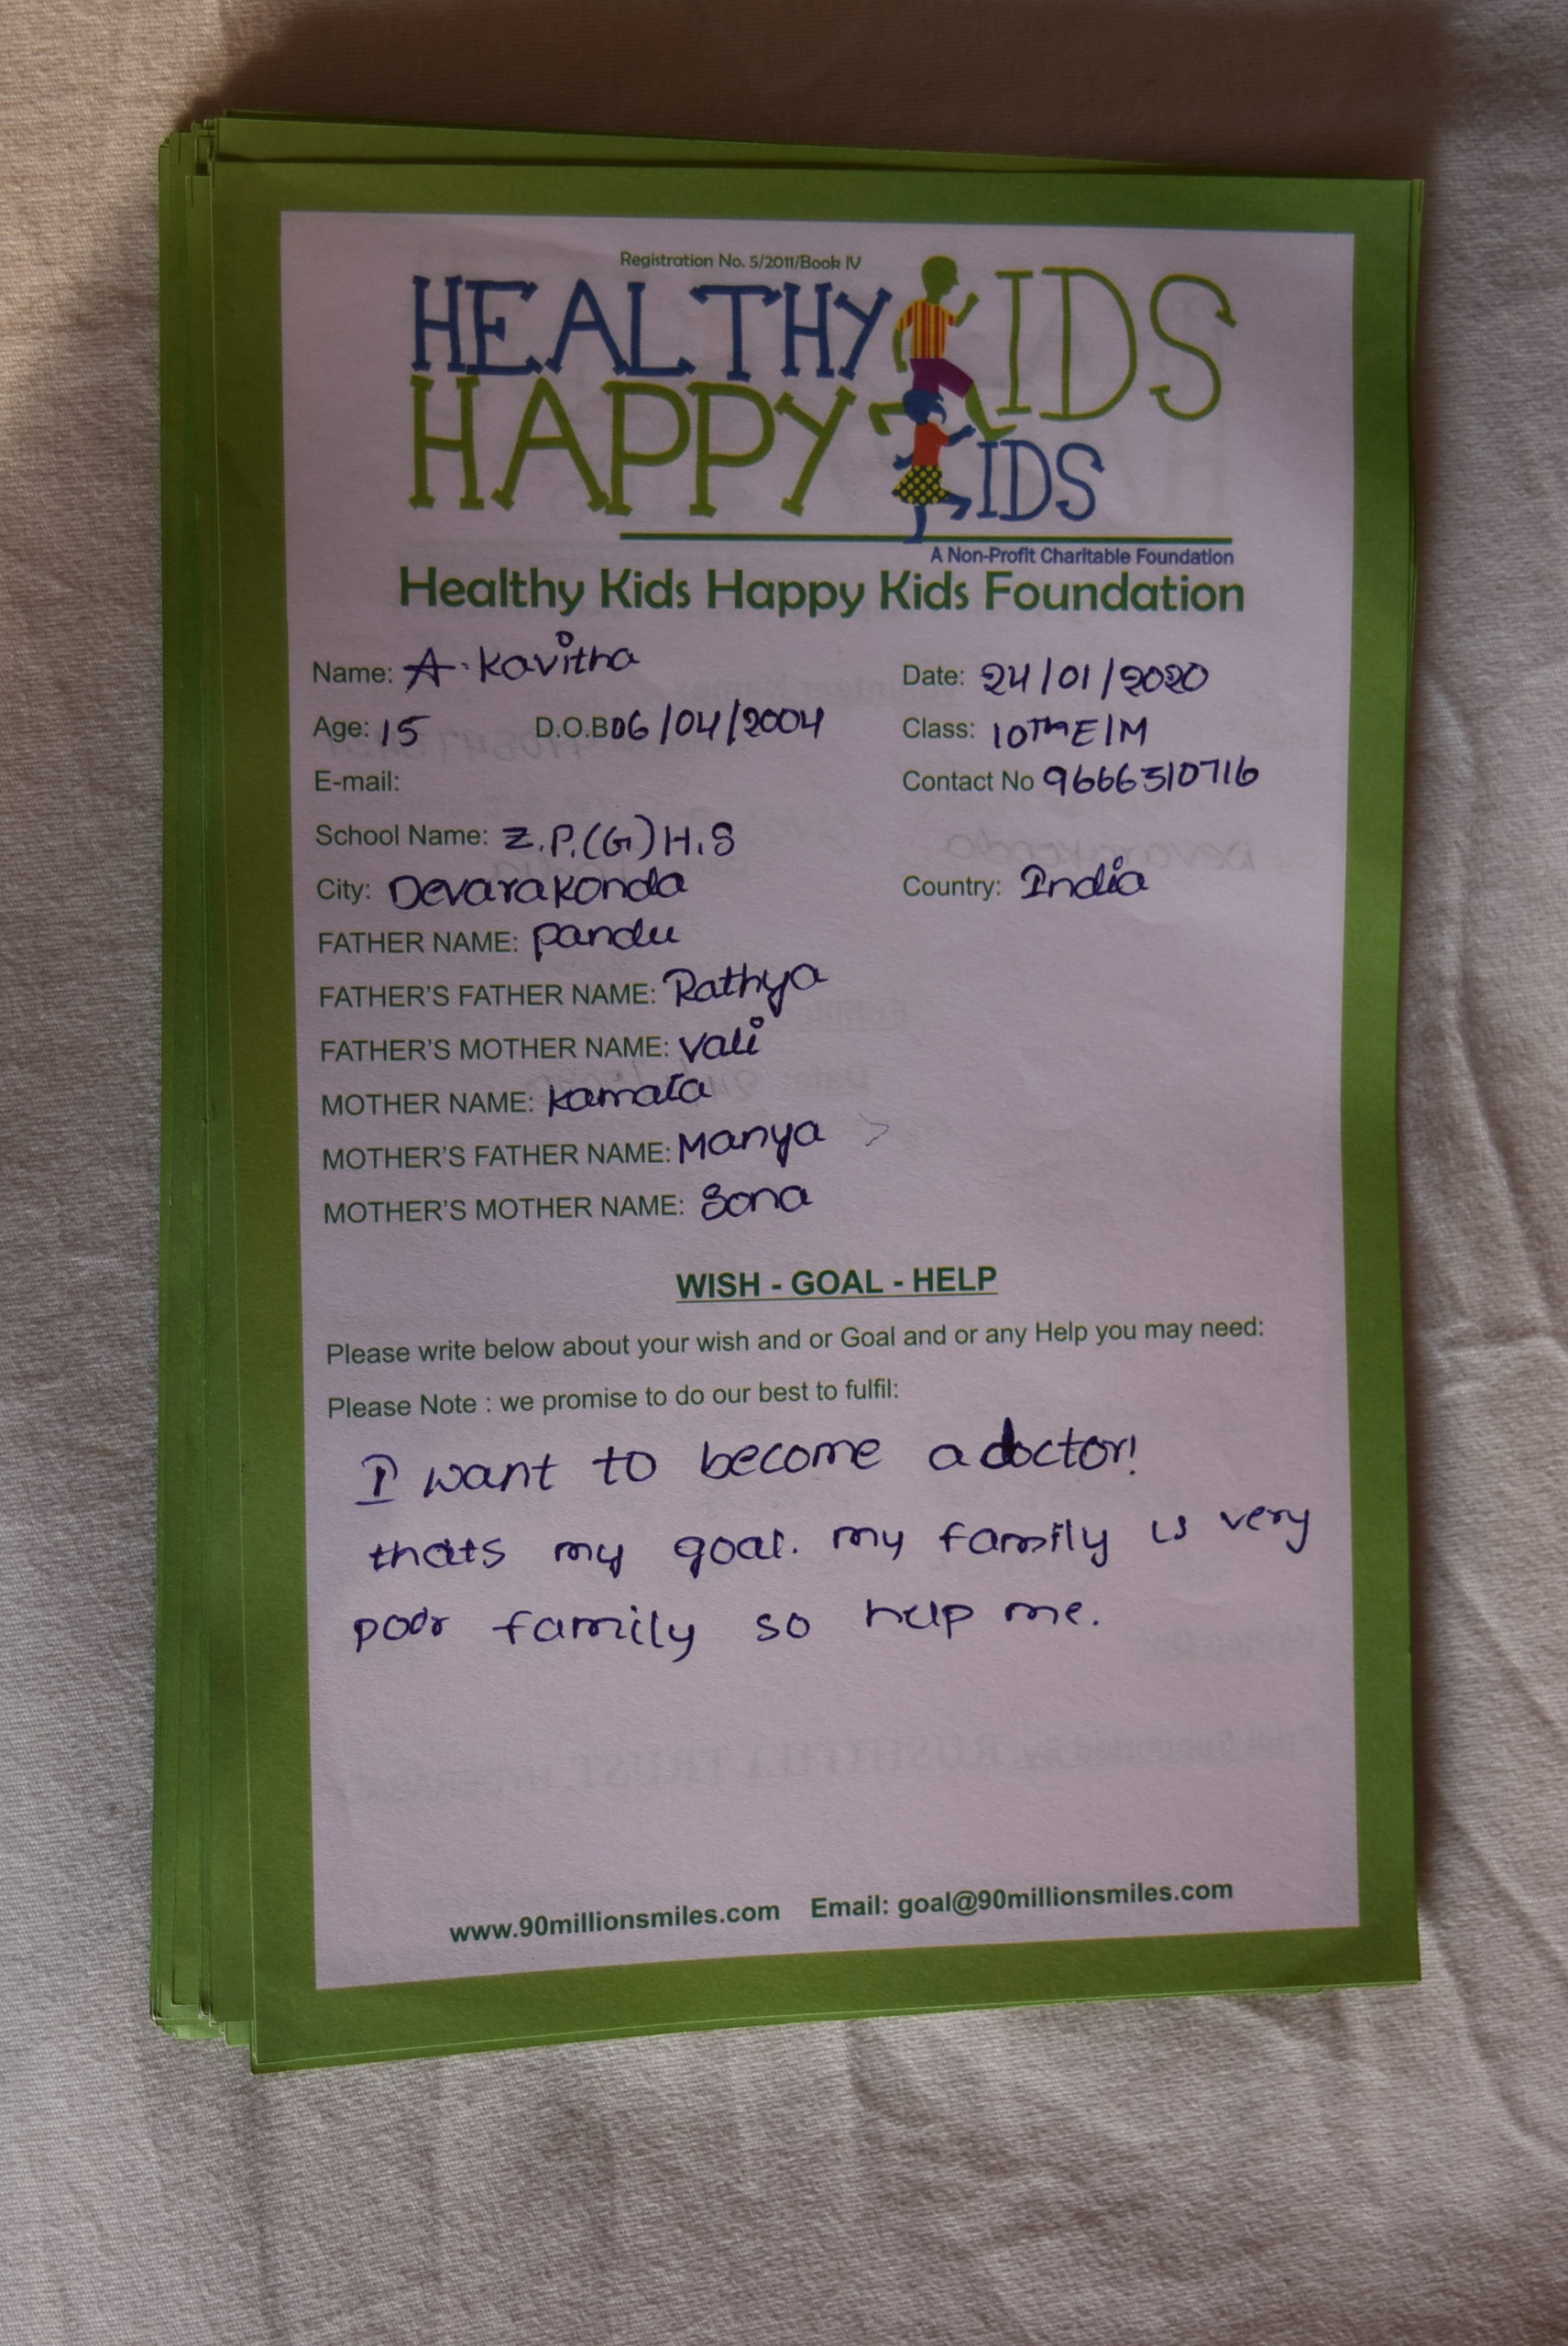 Registration No. 5/2011/Book IV
HEALTHY KIDS
HAPPY KIDS
A Non-Profit Charitable Foundation
Healthy Kids Happy Kids Foundation
Name: A. Kavitha Date: 24/01/2020
Age: 15 D.O.B 06/04/2004 Class: 10Th E/M
E-mail: Contact No 9666510716
School Name: Z.P.(G)H.S
City: Devarakonda Country: India
FATHER NAME: pandu
FATHER'S FATHER NAME: Rathya
FATHER'S MOTHER NAME: Vali
MOTHER NAME: kamala
MOTHER'S FATHER NAME: Manya
MOTHER'S MOTHER NAME: Sona
WISH - GOAL - HELP
Please write below about your wish and or Goal and or any Help you may need:
Please Note : we promise to do our best to fulfil:
I want to become a doctor!
thats my goal. my family is very
poor family so help me.
www.90millionsmiles.com Email: goal@90millionsmiles.com